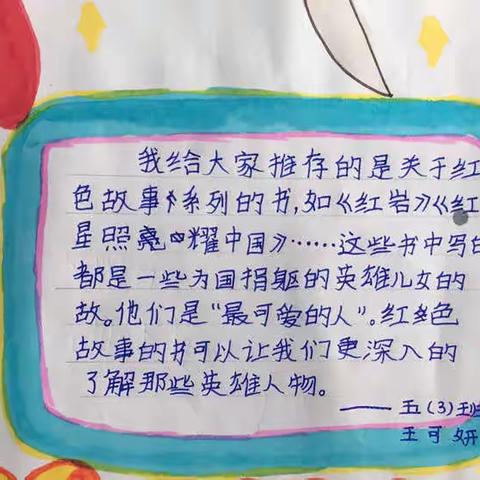 我给大家推存的是关于红
色故事系列的书,如《红岩》《红
星照亮耀中国》……这些书中写的
都是一些为国捐躯的英雄儿女的
故。他们是“最可爱的人”。红色
故事的书可以让我们更深入的
了解那些英雄人物。
——五(3)班
王可妍